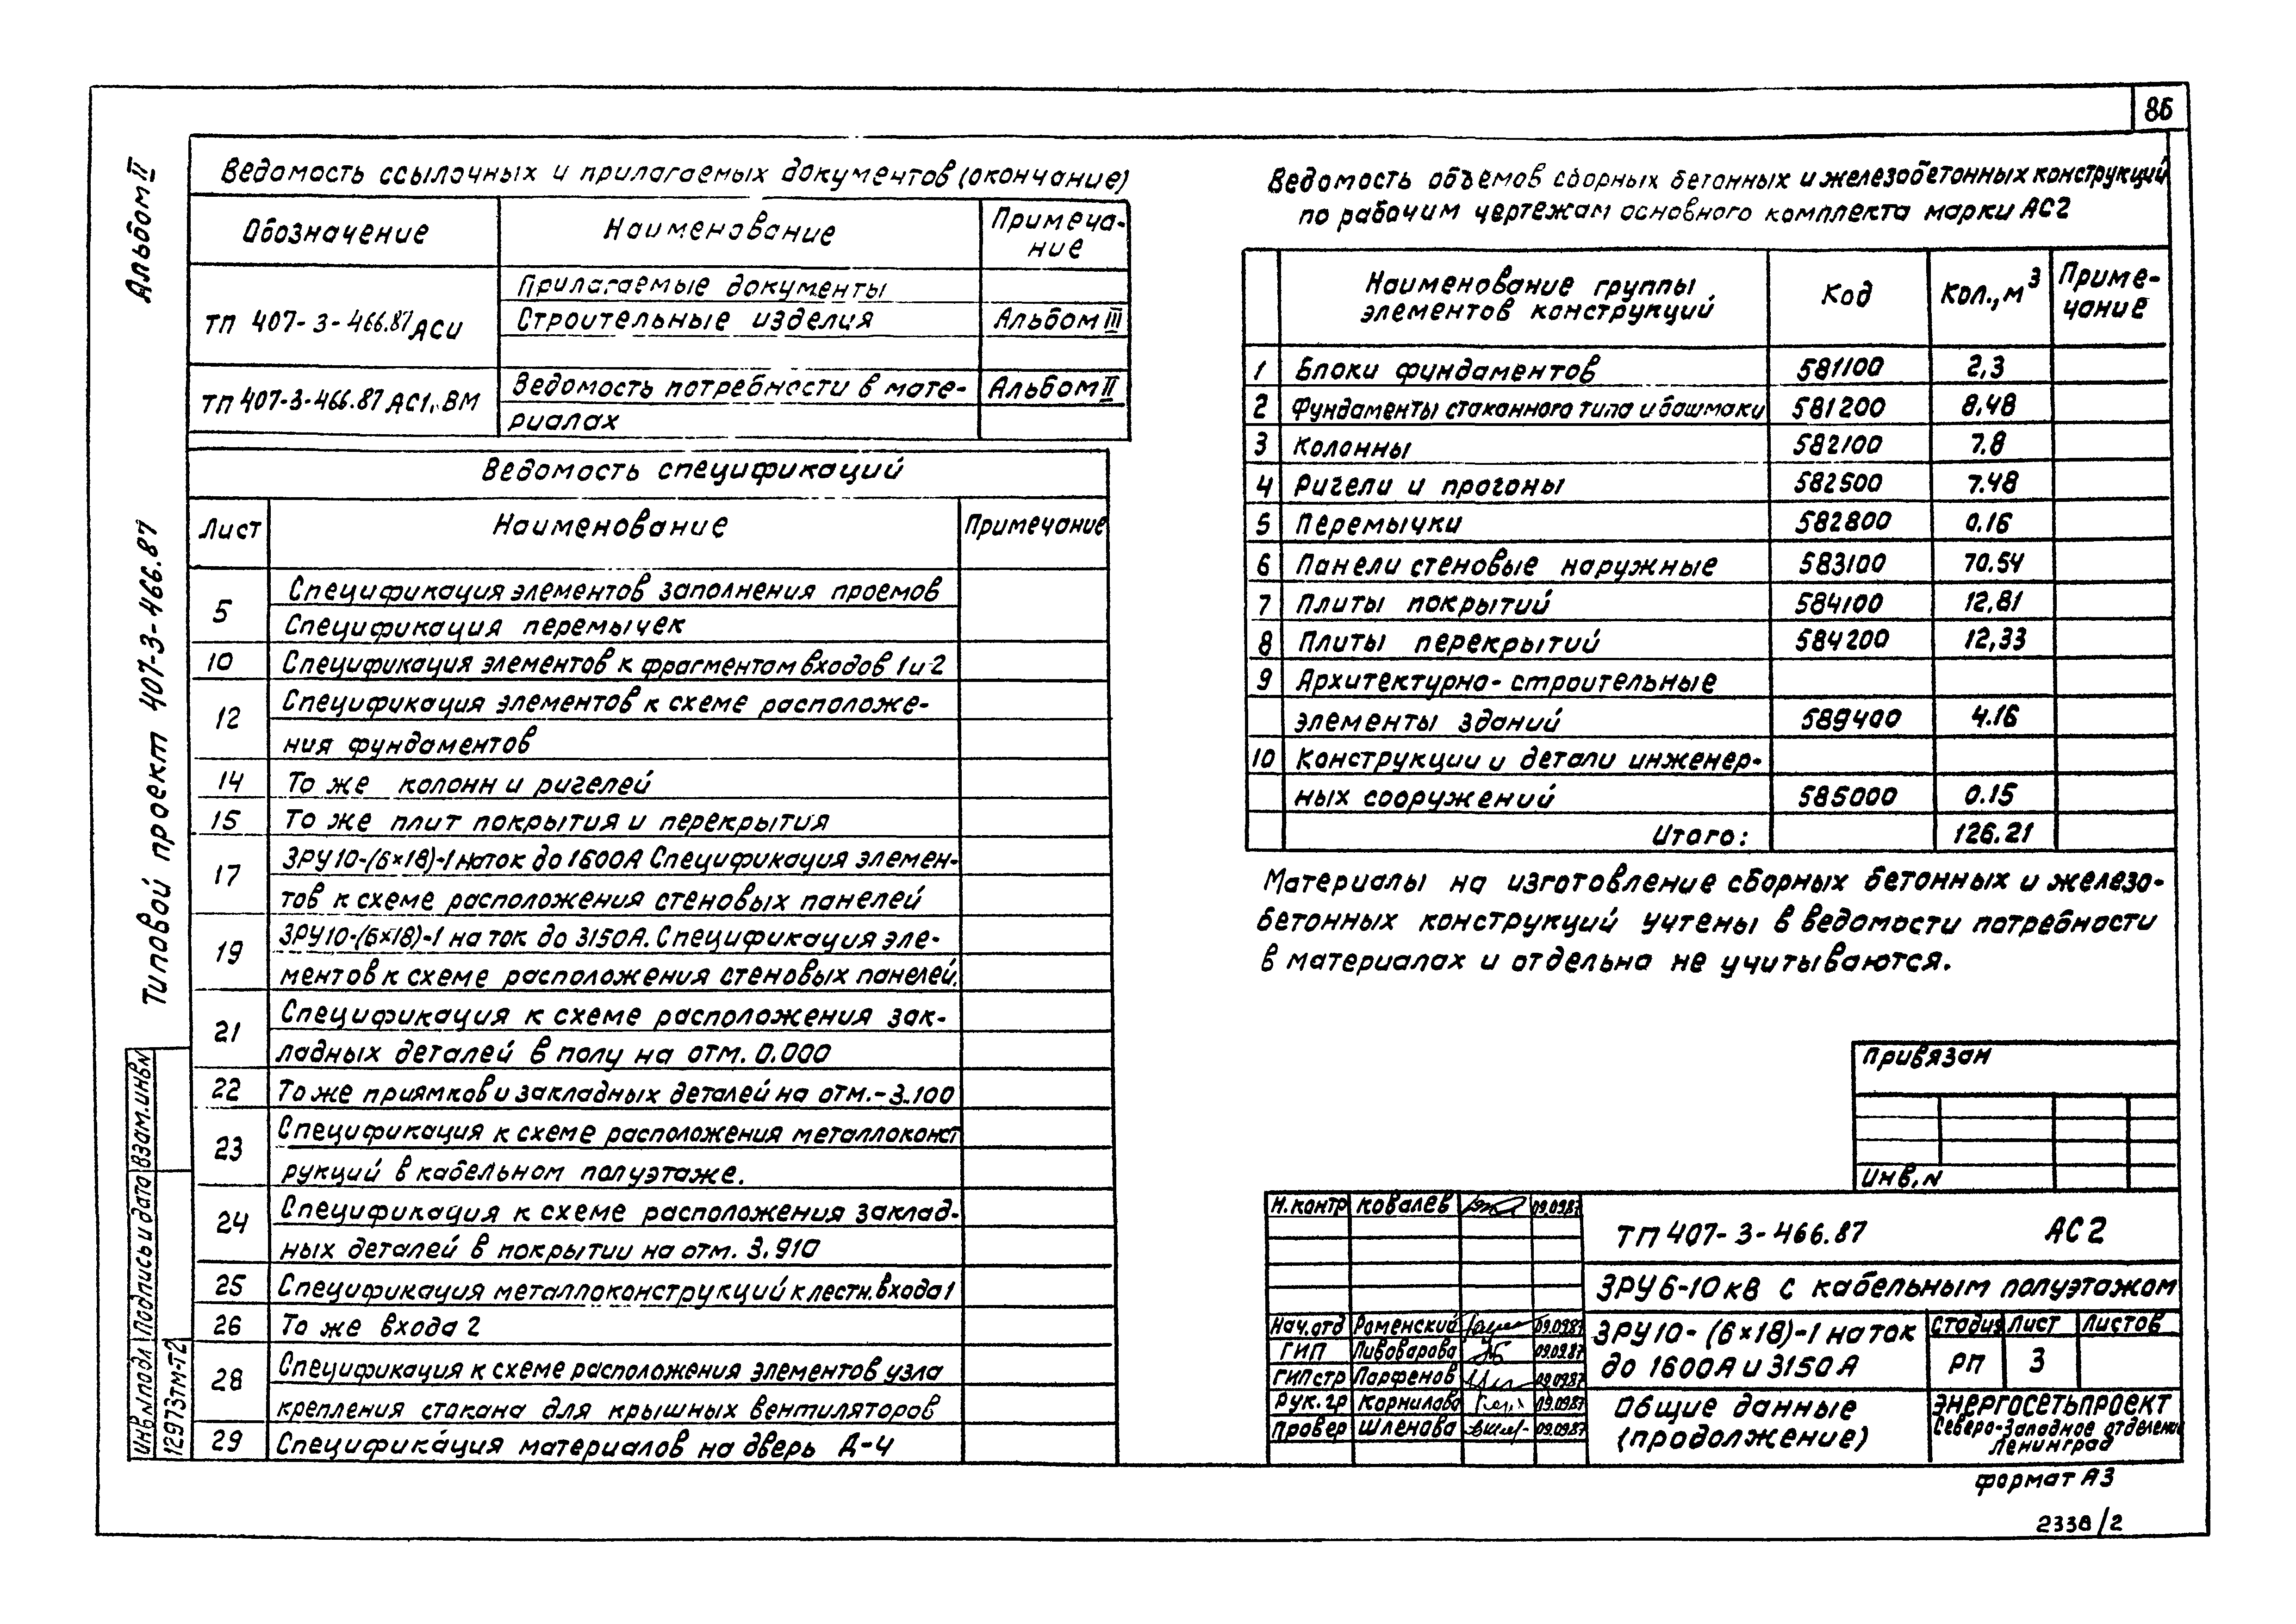 86
Альбом II
Типовой проект 407-3-466.87
Ведомость ссылочных и прилагаемых документов (окончание)
Обозначение Наименование Примеча-
ние
Прилагаемые документы
ТП 407-3-466.87 АСИ Строительные изделия Альбом III
ТП 407-3-466.87 АС1, ВМ Ведомость потребности в мате- Альбом II
риалах
Ведомость спецификаций
Лист Наименование Примечание
5 Спецификация элементов заполнения проемов
Спецификация перемычек
10 Спецификация элементов к фрагментам входов 1 и 2
12 Спецификация элементов к схеме расположе-
ния фундаментов
14 То же колонн и ригелей
15 То же плит покрытия и перекрытия
17 ЗРУ10-(6×18)-1 на ток до 1600А Спецификация элемен-
тов к схеме расположения стеновых панелей
19 ЗРУ10-(6×18)-1 на ток до 3150А. Спецификация эле-
ментов к схеме расположения стеновых панелей.
21 Спецификация к схеме расположения зак-
ладных деталей в полу на отм. 0.000
22 То же приямков и закладных деталей на отм.-3.100
23 Спецификация к схеме расположения металлоконст
рукций в кабельном полуэтаже.
24 Спецификация к схеме расположения заклад-
ных деталей в покрытии на отм. 3.910
25 Спецификация металлоконструкций к лестн. входа 1
26 То же входа 2
28 Спецификация к схеме расположения элементов узла
крепления стакана для крышных вентиляторов
29 Спецификация материалов на дверь Д-4
Ведомость объемов сборных бетонных и железобетонных конструкций
по рабочим чертежам основного комплекта марки АС2
Наименование группы элементов конструкций Код Кол., м³ Приме-
чание
1 Блоки фундаментов 581100 2,3
2 Фундаменты стаканного типа и башмаки 581200 8.48
3 Колонны 582100 7.8
4 Ригели и прогоны 582500 7.48
5 Перемычки 582800 0.16
6 Панели стеновые наружные 583100 70.54
7 Плиты покрытий 584100 12,81
8 Плиты перекрытий 584200 12,33
9 Архитектурно-строительные
элементы зданий 589400 4.16
10 Конструкции и детали инженер-
ных сооружений 585000 0.15
Итого: 126.21
Материалы на изготовление сборных бетонных и железо-
бетонных конструкций учтены в ведомости потребности
в материалах и отдельно не учитываются.
Привязан
Инв. N
Н.контр Ковалев 09.09.87
Нач.отд Раменский 09.09.87
ГИП Пивоварова 09.09.87
ГИПстр Парфенов 09.09.87
Рук. гр Корнилова 09.09.87
Провер Шленова 09.09.87
ТП 407-3-466.87 АС2
ЗРУ 6-10кв с кабельным полуэтажом
ЗРУ10-(6×18)-1 на ток
до 1600А и 3150А
Стадия Лист Листов
РП 3
Общие данные
(продолжение)
Энергосетьпроект
Северо-Западное отделение
Ленинград
формат А3
2338/2
Инв.N подл Подпись и дата Взам.инв.N
12973тм-т2